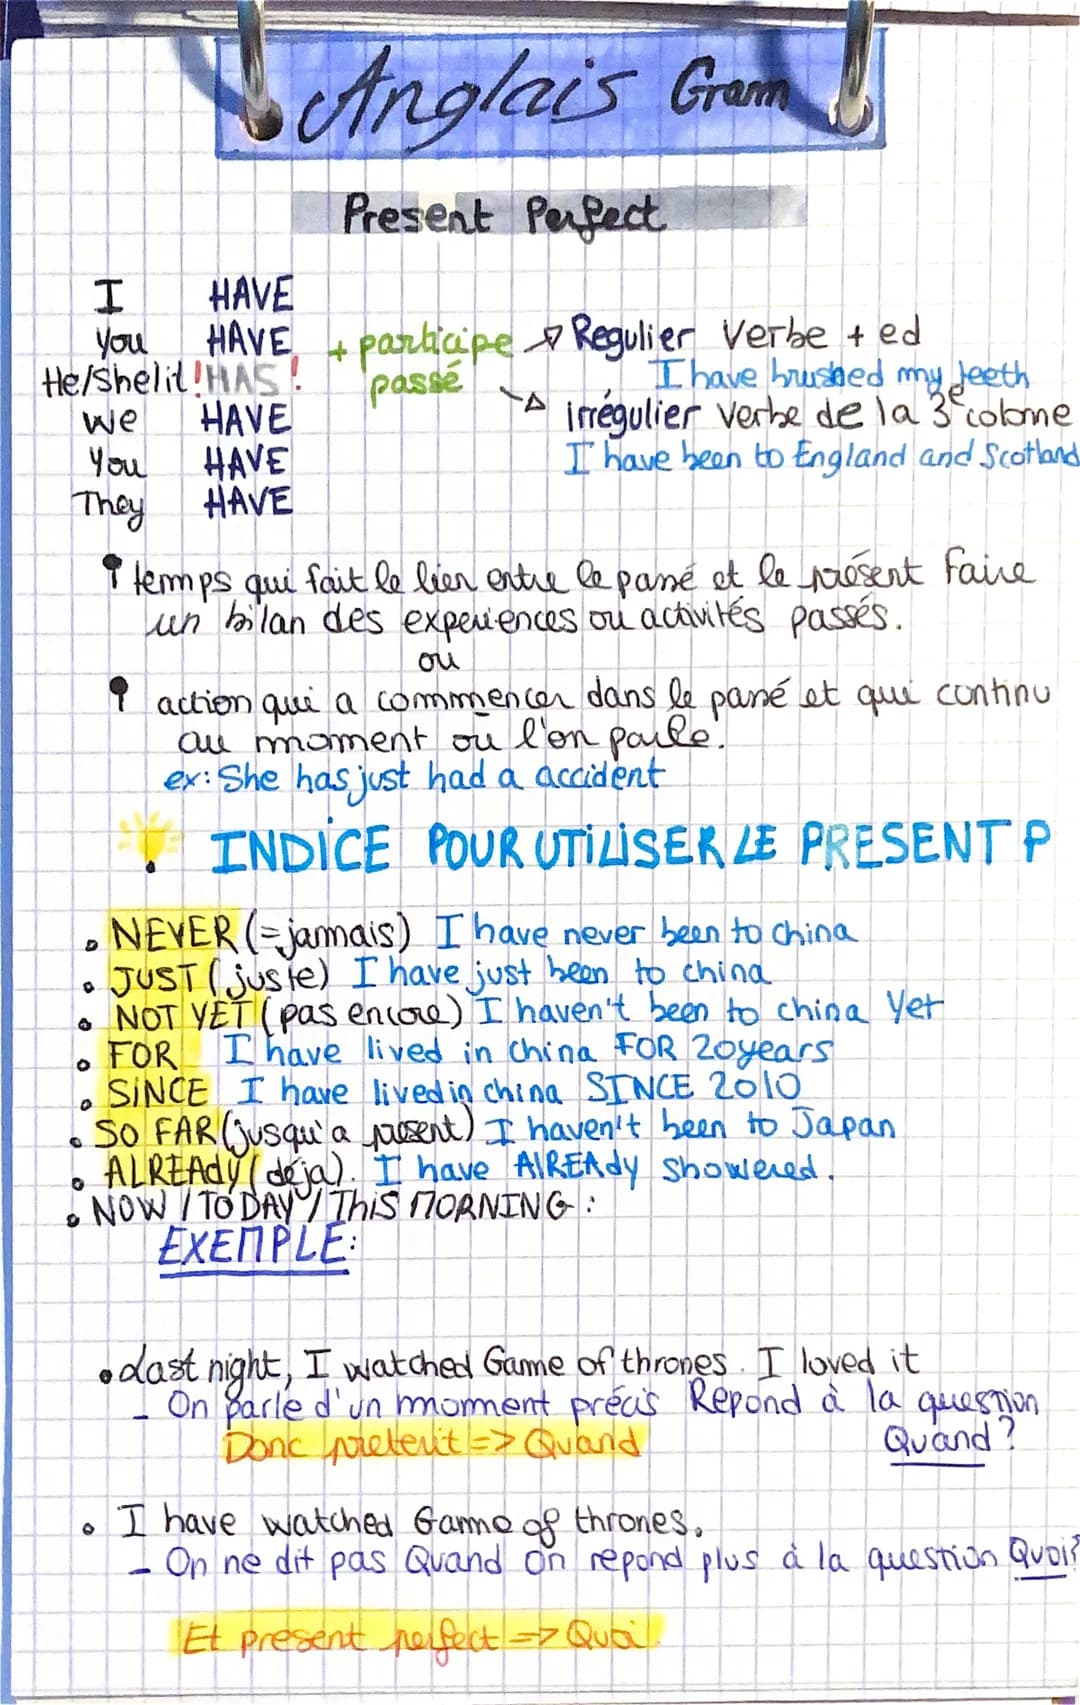 Anglais Gram
Present Perfect
I HAVE
you HAVE + participe passé → Regulier Verbe + ed
He/she/it ! HAS ! I have brushed my teeth
we HAVE irrégulier verbe de la 3e colome
You HAVE I have been to England and Scotland
They HAVE
temps qui fait le lien entre le passé et le présent Faire
un bilan des experiences ou activités passés.
ou
action qui a commencer dans le passé et qui continu
au moment où l'on parle.
ex: She has just had a accident
INDICE POUR UTILISER LE PRESENT P
• NEVER (=jamais) I have never been to china
• JUST (juste) I have just been to china
• NOT YET (pas encore) I haven't been to china Yet
• FOR I have lived in china FOR 20years
• SINCE I have lived in china SINCE 2010
• SO FAR (jusqu'a present) I haven't been to Japan
• ALREADY (déja). I have AlREAdy showered.
• NOW / TODAY / THiS MORNING :
EXEMPLE:
• Last night, I watched Game of thrones. I loved it
- On parle d'un moment précis Repond à la question
Donc preterit => Quand Quand?
• I have watched Game of thrones.
- On ne dit pas Quand On repond plus à la question Quoi?
Et present perfect => Quoi